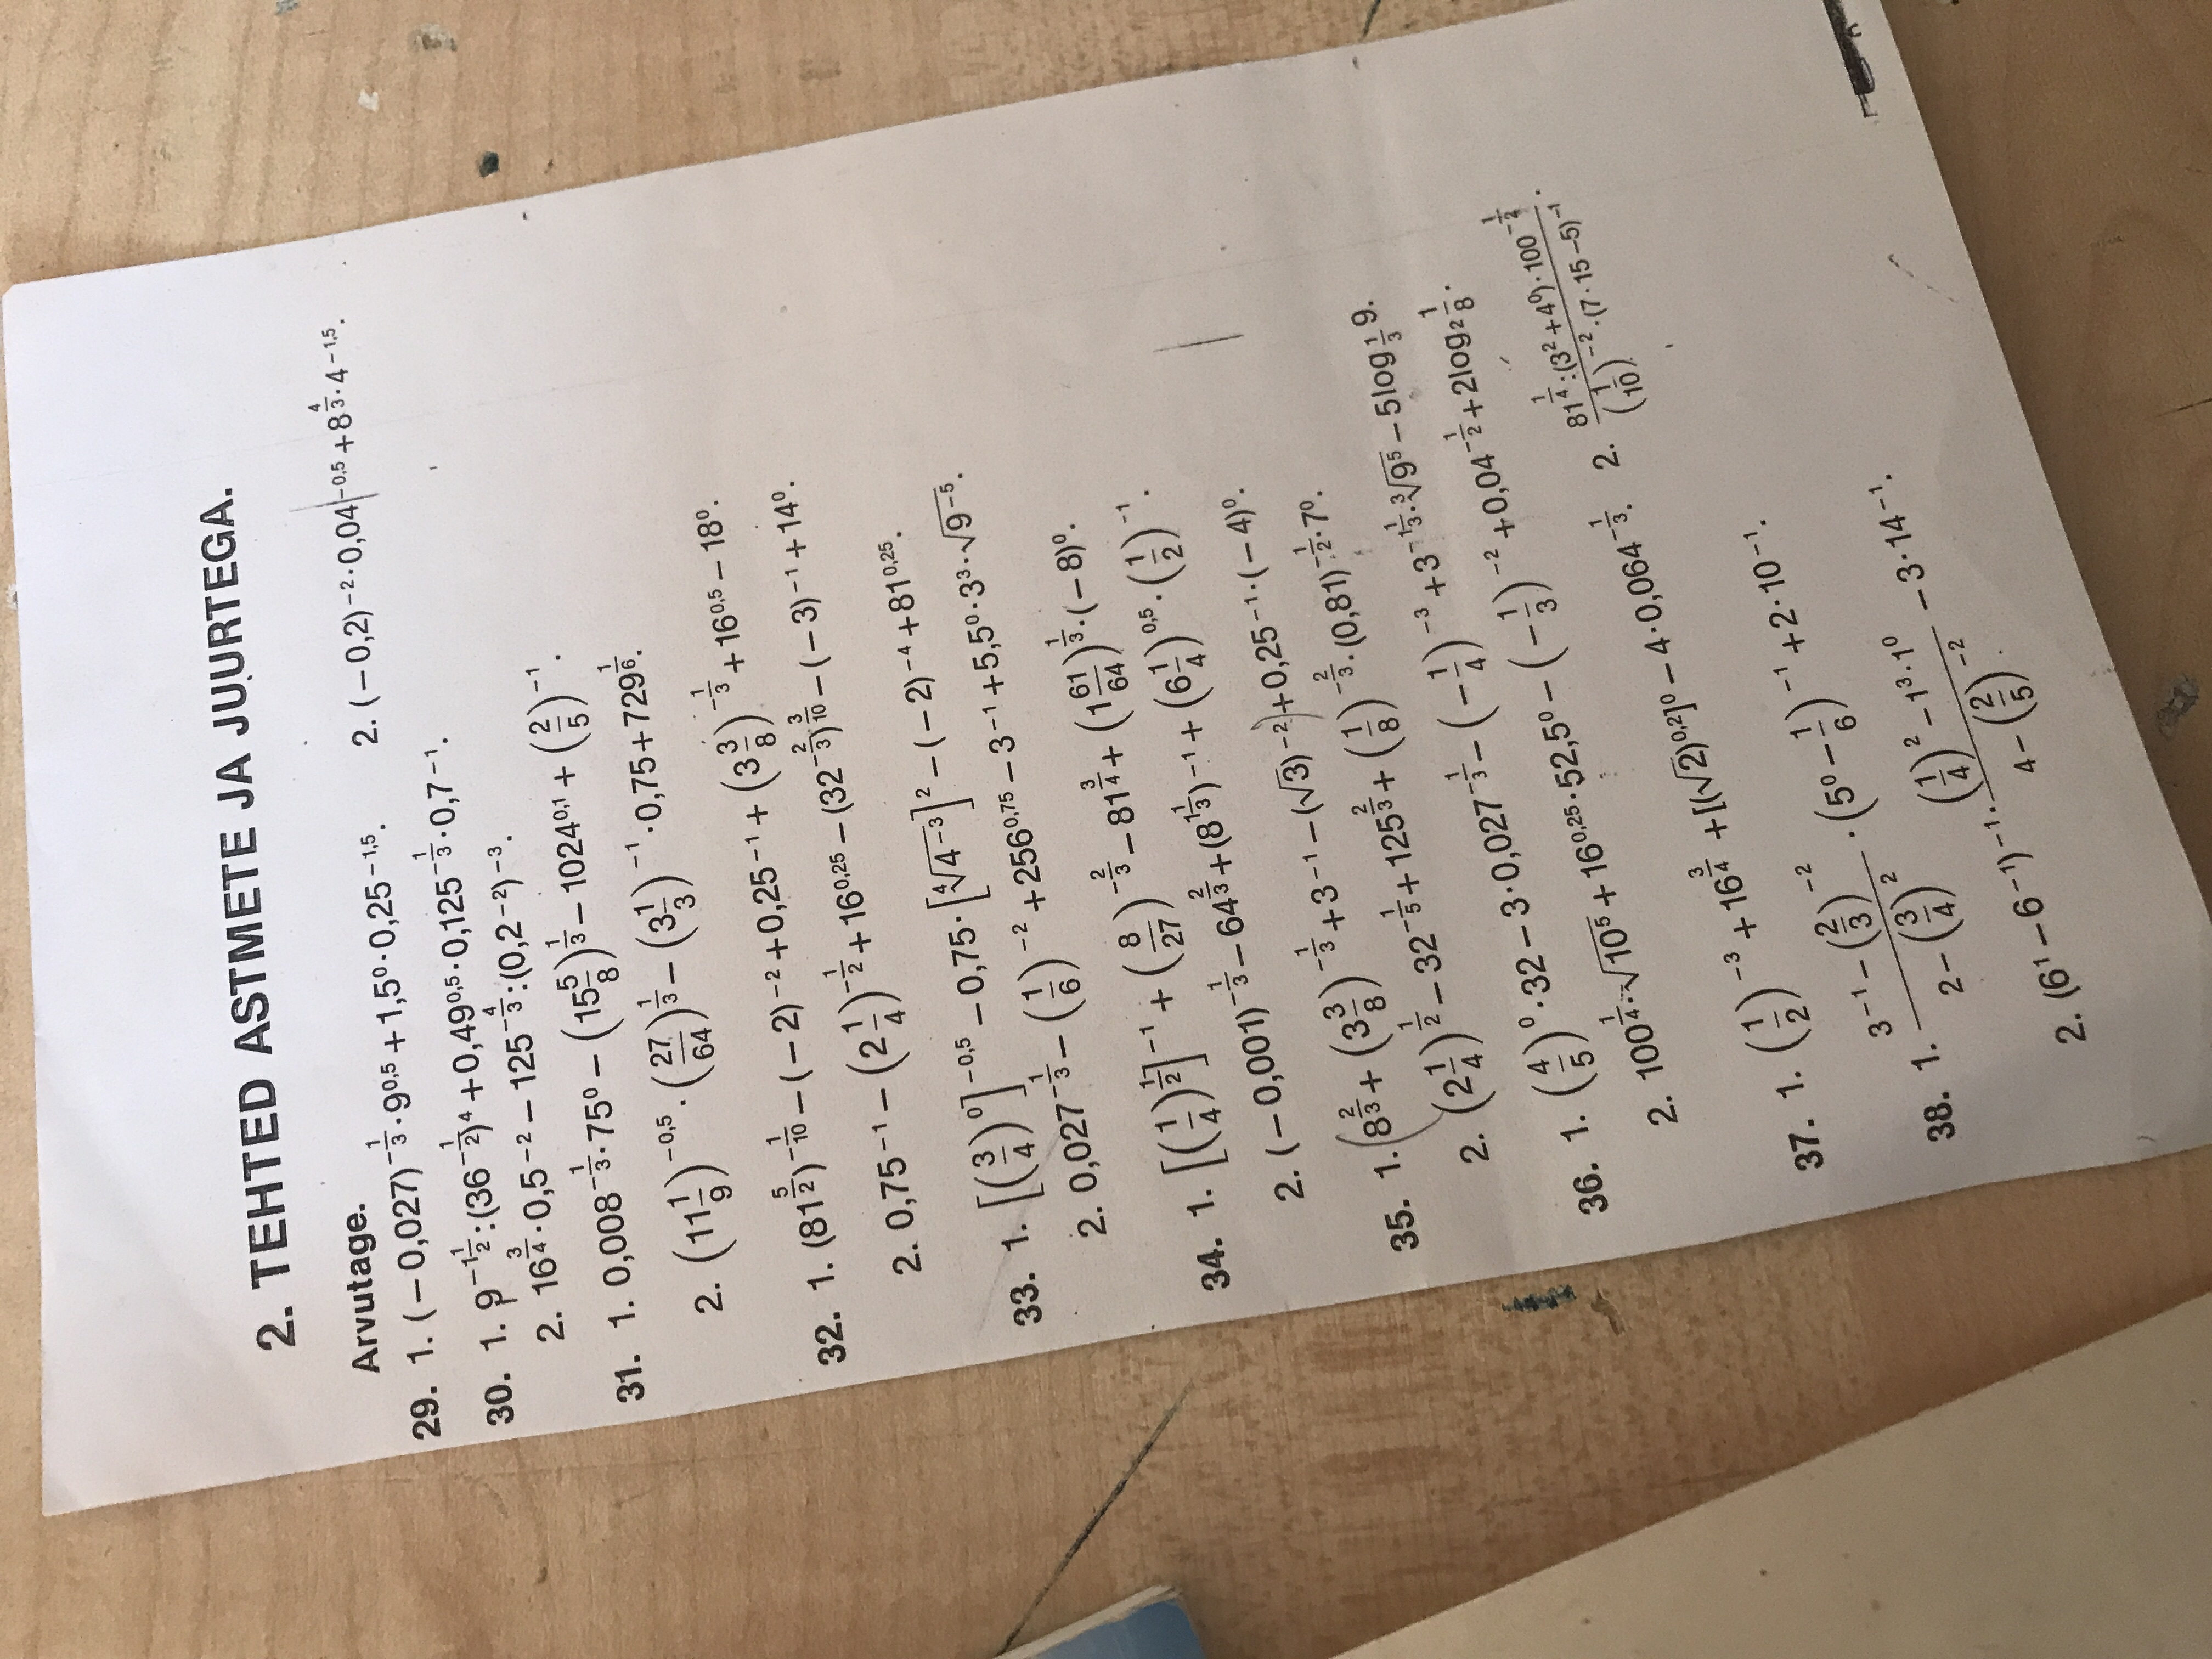 2. TEHTED ASTMETE JA JUURTEGA.
Arvutage.
29. 1. (−0,027)^(−1/3)·9^(0,5) + 1,5^0·0,25^(−1,5). 2. (−0,2)^(−2)·0,04^(−0,5) + 8^(4/3)·4^(−1,5).
30. 1. 9^(−1 1/2):(36^(−1/2))^4 + 0,49^(0,5)·0,125^(−1/3)·0,7^(−1).
2. 16^(3/4)·0,5^(−2) − 125^(−4/3):(0,2^(−2))^(−3).
31. 1. 0,008^(−1/3)·75^0 − (15 5/8)^(1/3) − 1024^(0,1) + (2/5)^(−1).
2. (11 1/9)^(−0,5)·(27/64)^(1/3) − (3 1/3)^(−1)·0,75 + 729^(1/6).
32. 1. (81^(5/2))^(−1/10) − (−2)^(−2) + 0,25^(−1) + (3 3/8)^(−1/3) + 16^(0,5) − 18^0.
2. 0,75^(−1) − (2 1/4)^(−1/2) + 16^(0,25) − (32^(−2/3))^(3/10) − (−3)^(−1) + 14^0.
33. 1. [(3/4)^0]^(−0,5) − 0,75·[⁴√4^(−3)]^2 − (−2)^(−4) + 81^(0,25).
2. 0,027^(−1/3) − (1/6)^(−2) + 256^(0,75) − 3^(−1) + 5,5^0·3^3·√9^(−5).
34. 1. [(1/4)^(1/2)]^(−1) + (8/27)^(−2/3) − 81^(3/4) + (1 61/64)^(1/3)·(−8)^0.
2. (−0,001)^(−1/3) − 64^(2/3) + (8^(1/3))^(−1) + (6 1/4)^(0,5)·(1/2)^(−1).
35. 1. 8^(2/3) + (3 3/8)^(−1/3) + 3^(−1) − (√3)^(−2) + 0,25^(−1)·(−4)^0.
2. (2 1/4)^(1/2) − 32^(−1/5) + 125^(2/3) + (1/8)^(−2/3)·(0,81)^(−1/2)·7^0.
36. 1. (4/5)^0·32 − 3·0,027^(−1/3) − (−1/4)^(−3) + 3^(−1/3)·³√9^5 − 5log_(1/3) 9.
2. 100^(1/4)·√10^5 + 16^(0,25)·52,5^0 − (−1/3)^(−2) + 0,04^(−1/2) + 2log_2 1/8.
37. 1. (1/2)^(−3) + 16^(3/4) + [(√2)^(0,2)]^0 − 4·0,064^(−1/3). 2. (81^(1/4):(3^2+4^0)·100^(−1/2))/((1/10)^(−2)·(7·15−5)^(−1)).
38. 1. (3^(−1) − (2/3)^(−2))/(2 − (3/4)^2)·(5^0 − 1/6)^(−1) + 2·10^(−1).
2. (6^1 − 6^(−1))^(−1)·((1/4)^2 − 1^3·1^0)/(4 − (2/5)^(−2)) − 3·14^(−1).